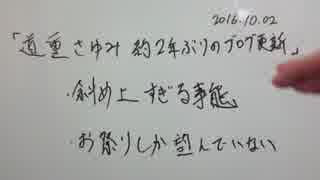 2016.10.02
「道重さゆみ 約2年ぶりのブログ更新」
・斜め上すぎる事態
・お祭りしか望んでいない